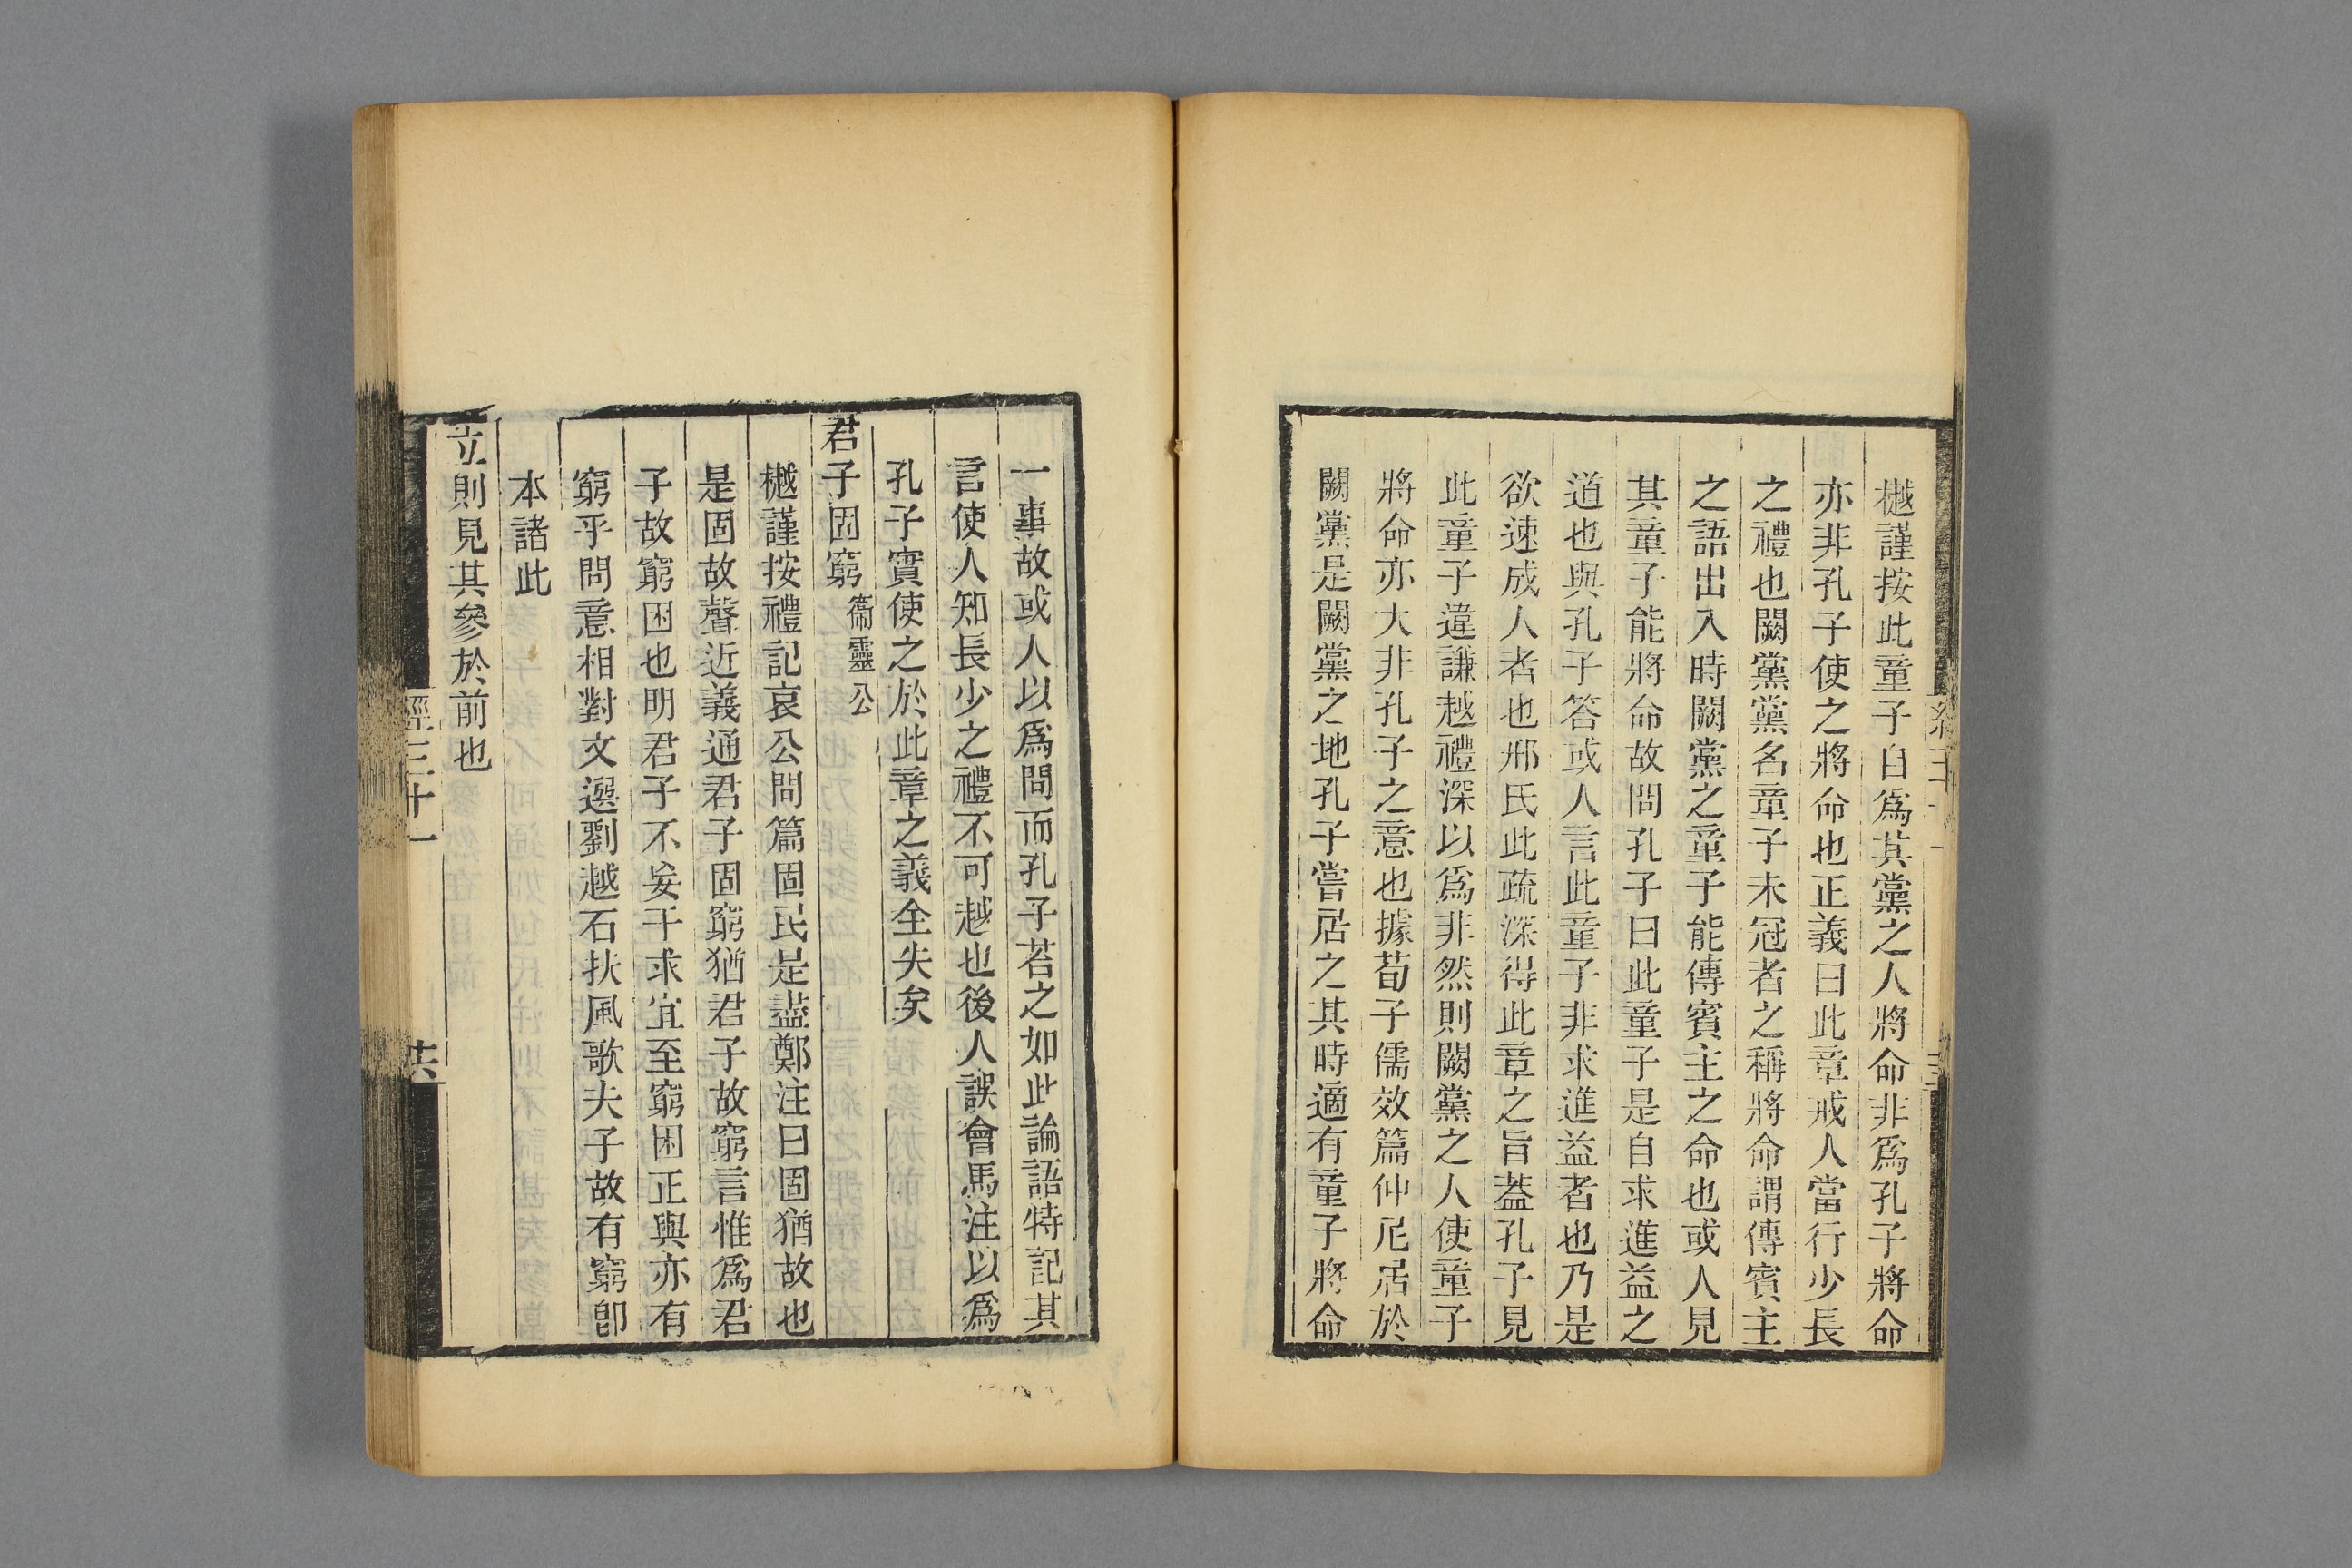 樾謹按此童子自爲其黨之人將命非爲孔子將命
亦非孔子使之將命也正義曰此章戒人當行少長
之禮也闕黨黨名童子未冠者之稱將命謂傳賓主
之語出入時闕黨之童子能傳賓主之命也或人見
其童子能將命故問孔子曰此童子是自求進益之
道也與孔子答或人言此童子非求進益者也乃是
欲速成人者也邢氏此疏深得此章之旨葢孔子見
此童子違謙越禮深以爲非然則闕黨之人使童子
將命亦大非孔子之意也據荀子儒效篇仲尼居於
闕黨是闕黨之地孔子嘗居之其時適有童子將命
一事故或人以爲問而孔子荅之如此論語特記其
言使人知長少之禮不可越也後人誤會馬注以爲
孔子實使之於此章之義全失矣
君子固窮 衞靈公
樾謹按禮記哀公問篇固民是盡鄭注曰固猶故也
是固故聲近義通君子固窮猶君子故窮言惟爲君
子故窮困也明君子不妄干求宜至窮困正與亦有
窮乎問意相對文選劉越石扶風歌夫子故有窮卽
本諸此
立則見其參於前也
經三十一